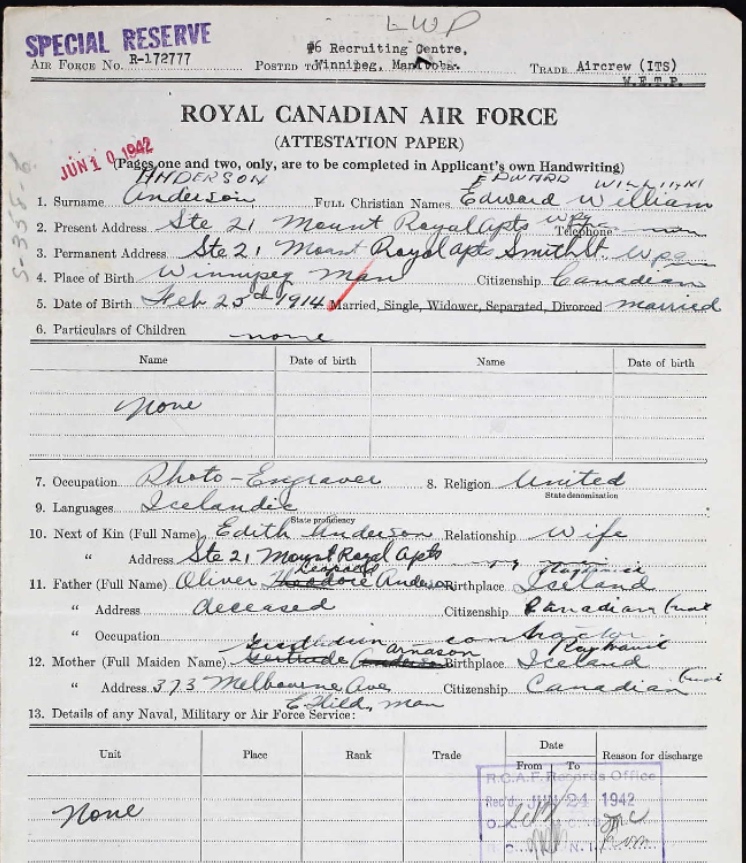 LWP
SPECIAL RESERVE
#6 Recruiting Centre,
AIR FORCE NO. R-172777 POSTED TO Winnipeg, Manitoba. TRADE Aircrew (ITS)
W.E.T.P.
ROYAL CANADIAN AIR FORCE
(ATTESTATION PAPER)
JUN 10 1942
(Pages one and two, only, are to be completed in Applicant's own Handwriting)
ANDERSON EDWARD WILLIAM
1. Surname Anderson FULL Christian Names Edward William
2. Present Address Ste 21 Mount Royal Apts Wpg Telephone
3. Permanent Address Ste 21 Mount Royal Apts Smith St. Wpg
4. Place of Birth Winnipeg Man Citizenship Canadian
5. Date of Birth Feb 25th 1914 Married, Single, Widower, Separated, Divorced married
6. Particulars of Children none
Name Date of birth Name Date of birth
None
7. Occupation Photo-Engraver 8. Religion United
State denomination
9. Languages Icelandic
State proficiency
10. Next of Kin (Full Name) Edith Anderson Relationship Wife
" Address Ste 21 Mount Royal Apts
11. Father (Full Name) Oliver Theodore Anderson Birthplace Iceland
" Address deceased Citizenship Canadian
" Occupation contractor
Arnason
12. Mother (Full Maiden Name) Gertrude Anderson Birthplace Iceland
" Address 373 Melbourne Ave Citizenship Canadian
E. Kild, Man
13. Details of any Naval, Military or Air Force Service:
Unit Place Rank Trade Date From To Reason for discharge
R.C.A.F. Records Office
None
Rec'd. JUN 24 1942